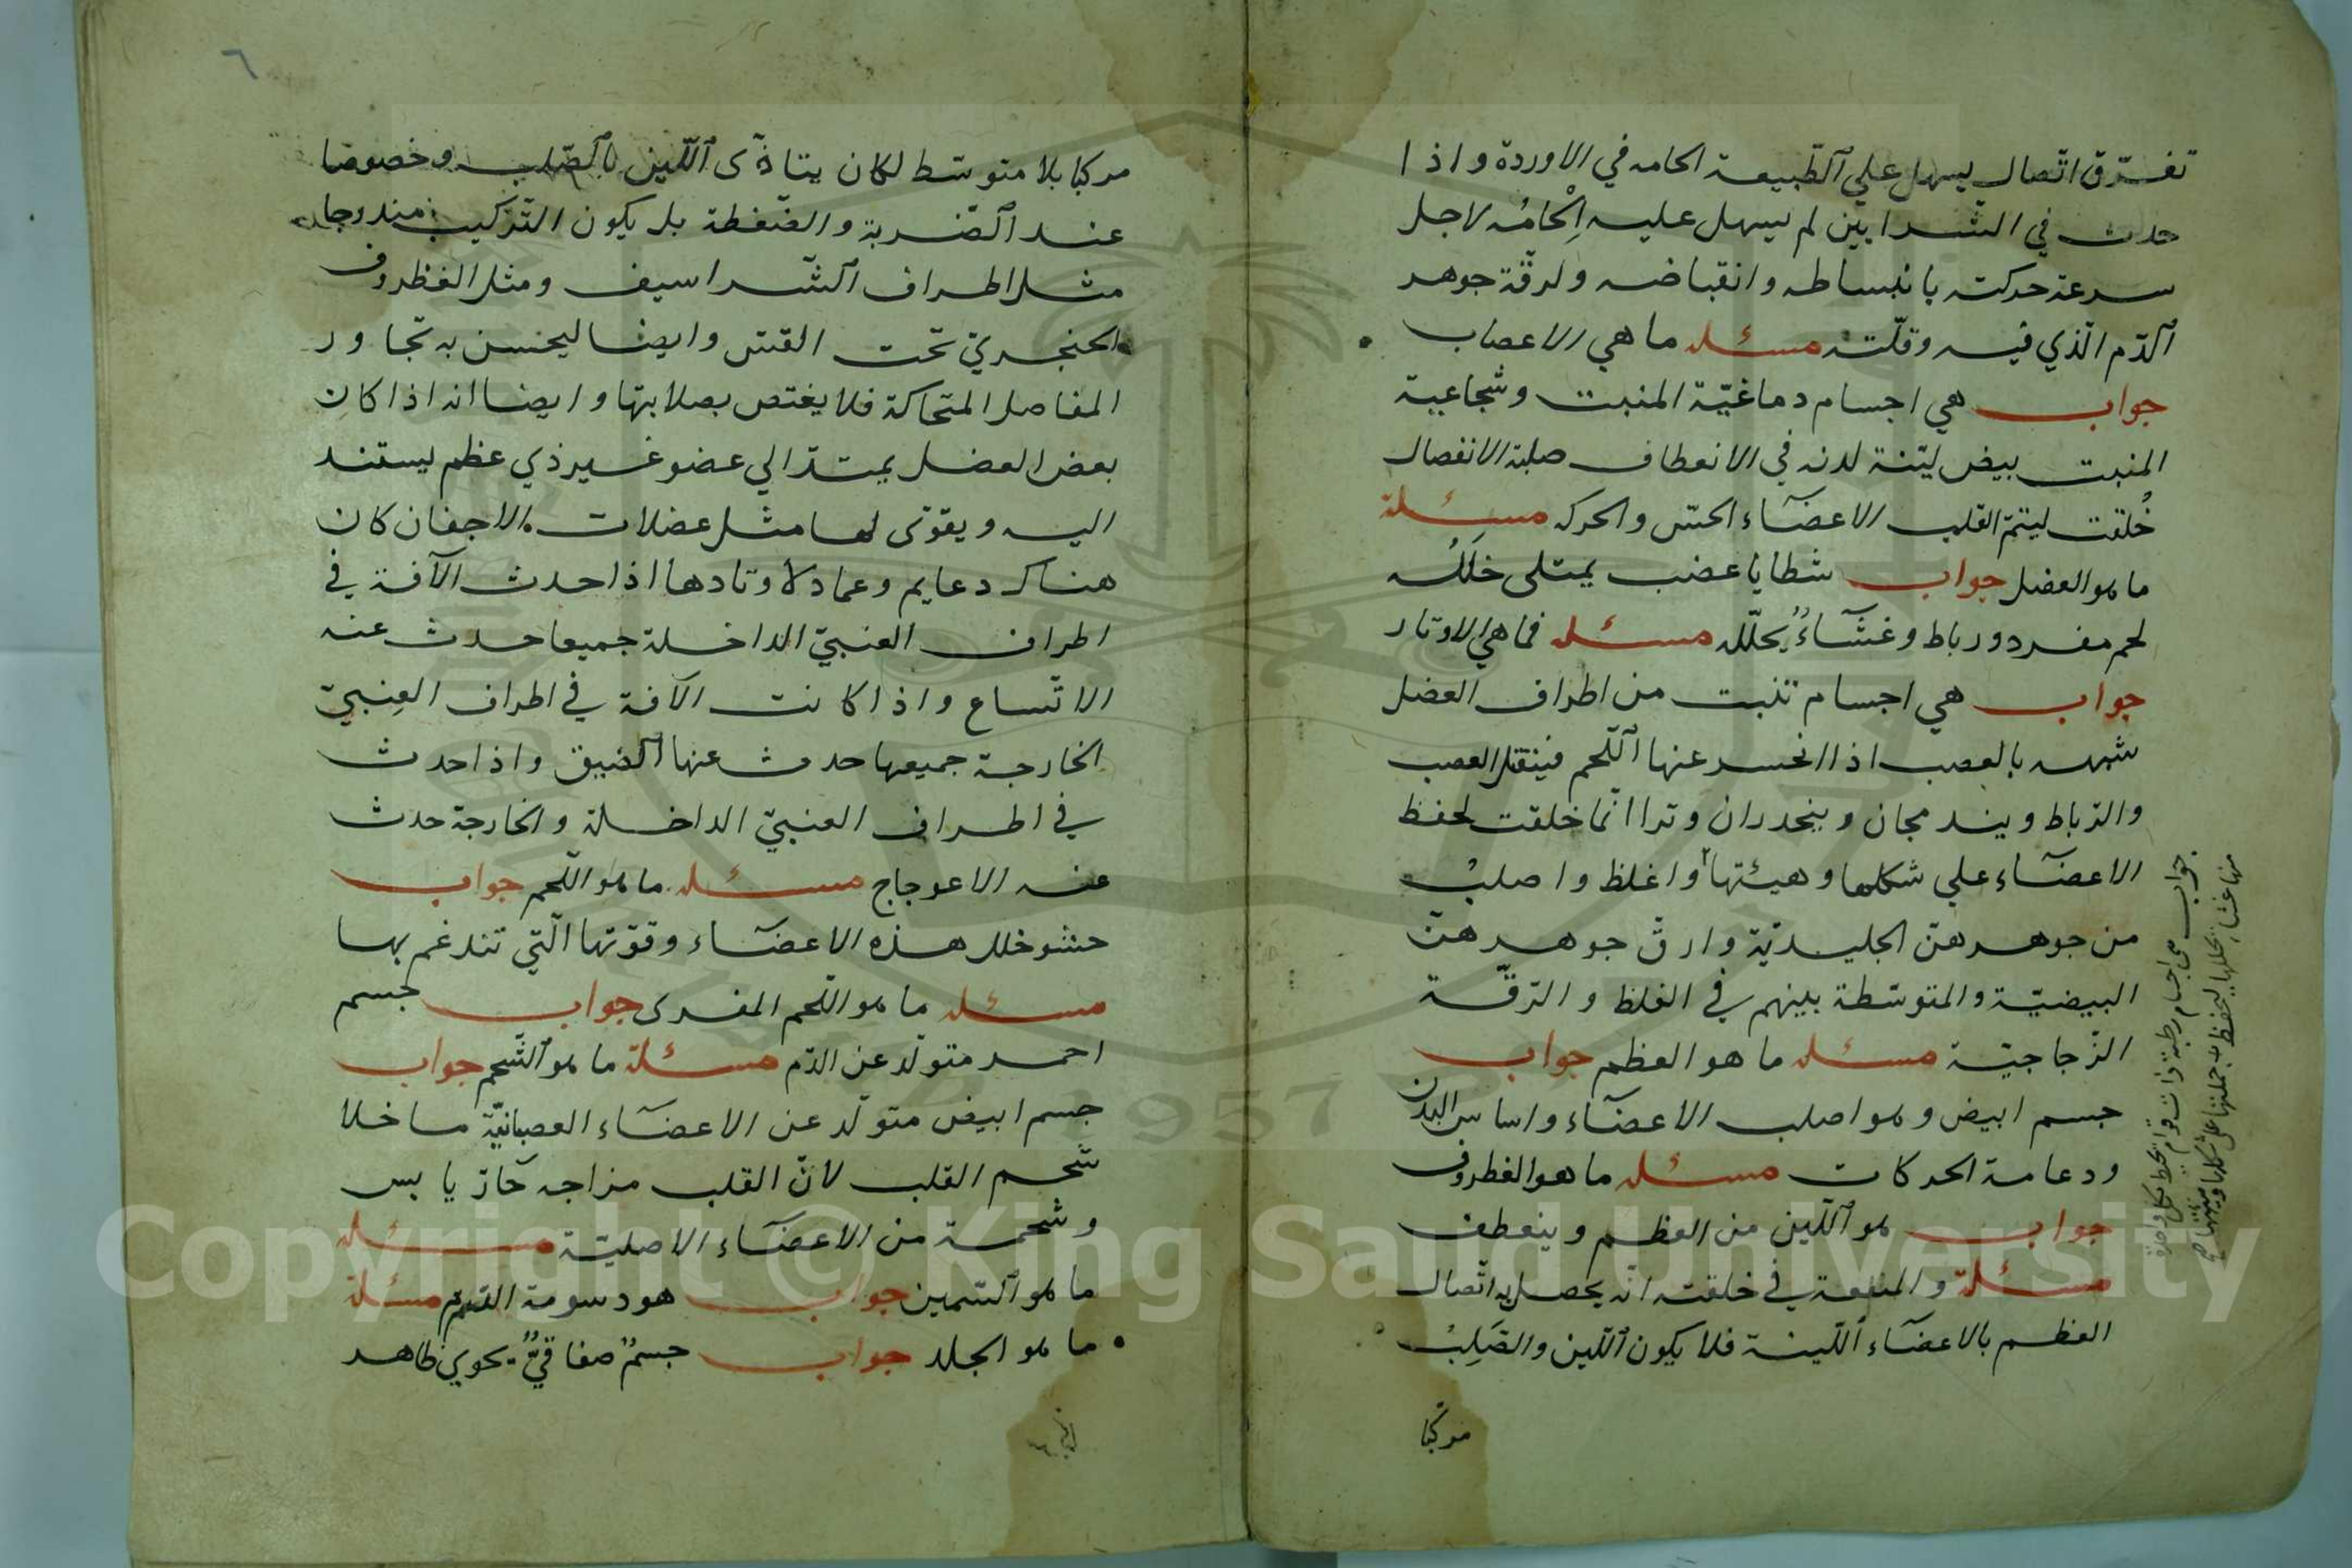 تفرّق اتّصال يسهل علي ٱلطّبيعة الحامه في الاوردة واذا
حدث في الشرايين لم يسهل عليه اِلْحامُه لاجل
سرعة حركته بانبساطه وانقباضه ولرقّة جوهر
ٱلدّم الّذي فيه وقلّته مسئله ما هي الاعصاب
جواب هي اجسام دماغيّة المنبت وشجاعية
المنبت بيض ليّنة لدنه في الانعطاف صلبة الانفصال
خُلقت ليتمّ القلب الاعضآء الحسّ والحركه مسئلة
ما هو العضل جواب شطايا عصب يمتلى خَلَلُه
لحم مفرد ورباط وغشآءٌ يحلّله مسئله فما هي الاوتار
جواب هي اجسام تنبت من اطراف العضل
شبهه بالعصب اذا انحسر عنها ٱللّحم فينقتل العصب
والرّباط ويندمجان وينحدران وترا انّما خلقت لحفظ
الاعضآء علي شكلها وهيئتها واغلظ واصلبُ
من جوهرهنّ الجليديّة وارقّ جوهرهنّ
البيضيّة والمتوسّطة بينهم في الغلظ والرّقّة
الزّجاجيّة مسئله ما هو العظم جواب
جسم ابيض وهو اصلب الاعضآء واساس البدن
ودعامة الحركات مسئله ما هو الغظروف
جواب هو ٱللّين من العظم وينعطف
مسئلة والمنفعة في خلقته انّه يحصل به اتّصال
العظم بالاعضآء ٱللّينة فلا يكون ٱللّين والصَّلِبُ
مركبّا
جواب هي اجسام رطبة ذات قوام يحيط بكل واحدة
منها غشاء يحللها ليحفظ به جملتها علي شكلها وهيئتها
٦
مركبا بلا متوسّط لكان يتاذّى ٱللّين بالصّلب وخصوصا
عند ٱلضّربة والضّغطة بل يكون التّركيب مندرجا
مثل اطراف ٱلشّراسيف ومثل الغظروف
الحنجريّ تحت القسّ وايضا ليحسن به تجاور
المفاصل المتحاكة فلا يغتص بصلابتها وايضا انه اذا كان
بعض العضل يمتدّ الي عضو غير ذي عظم ليستند
اليه ويقوّى لها مثل عضلات الاجفان كان
هناك دعايم وعماد لاوتادها اذا حدث الآفة في
اطراف العنبيّ الداخلة جميعا حدث عنه
الاتّساع واذا كانت الآفة في اطراف العِنبيّ
الخارجة جميعها حدث عنها ٱلضيق واذا حدث
في اطراف العنبيّ الداخلة والخارجة حدث
عنه الاعوجاج مسئله ما هو اللّحم جواب
حشو خلل هذه الاعضآء وقوّتها الّتي تندغم بها
مسئله ما هو اللّحم المفرد جواب جسم
احمر متولّد عن الدّم مسئلة ما هو ٱلشّحم جواب
جسم ابيض متولّد عن الاعضآء العصبانيّة ما خلا
شحم القلب لانّ القلب مزاجه حآرّ يابس
وشحمة من الاعضآء الاصليّة مسئله
ما هو ٱلسّمين جواب هو دسومة الدّم مسئلة
ما هو الجلد جواب جسمٌ صفاقيٌّ يحوي ظاهر
Copyright © King Saud University
1957